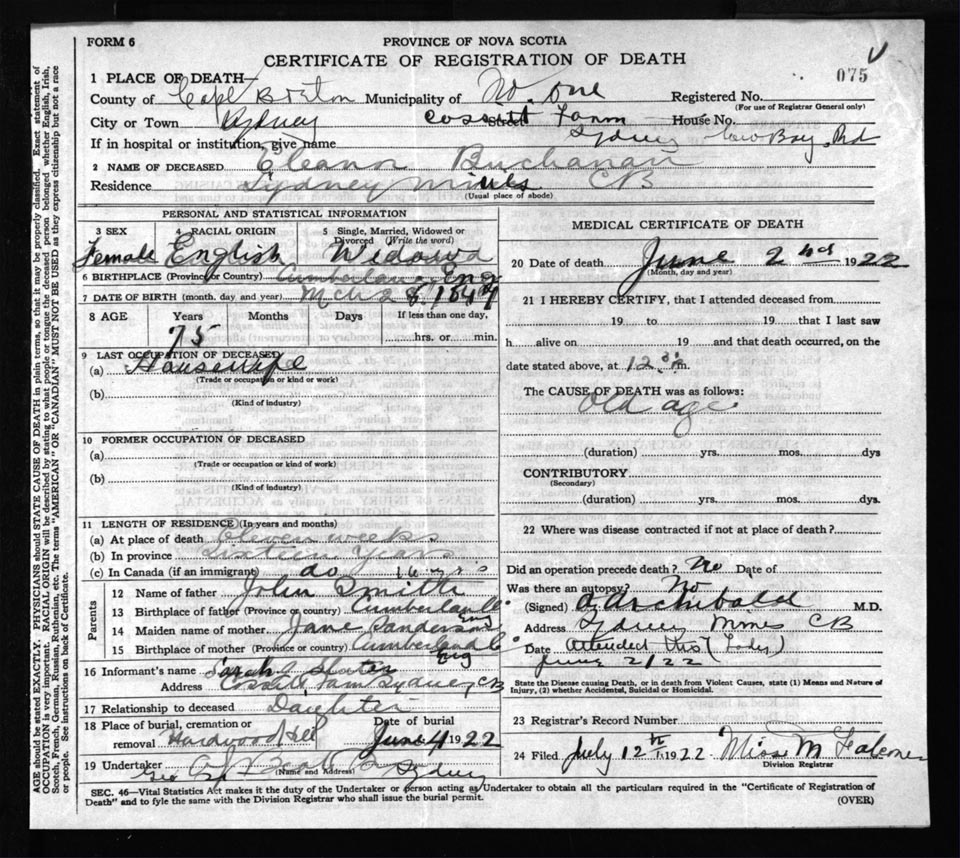 FORM 6
PROVINCE OF NOVA SCOTIA
CERTIFICATE OF REGISTRATION OF DEATH
075
1 PLACE OF DEATH—
County of Cape Breton Municipality of No. One Registered No.
(For use of Registrar General only)
City or Town Sydney Street Cossitt Farm House No.
If in hospital or institution, give name Sydney Cow Bay Rd
2 NAME OF DECEASED Eleanor Buchanan
Residence Sydney Mines CB
(Usual place of abode)
PERSONAL AND STATISTICAL INFORMATION
3 SEX 4 RACIAL ORIGIN 5 Single, Married, Widowed or Divorced (Write the word)
Female English Widowd
6 BIRTHPLACE (Province or Country) Cumberland Eng
7 DATE OF BIRTH (month, day and year) Mch 28 1847
8 AGE Years Months Days If less than one day,
75 hrs. or min.
9 LAST OCCUPATION OF DECEASED
(a) Housewife
(Trade or occupation or kind or work)
(b)
(Kind of industry)
10 FORMER OCCUPATION OF DECEASED
(a)
(Trade or occupation or kind of work)
(b)
(Kind of industry)
11 LENGTH OF RESIDENCE (In years and months)
(a) At place of death Eleven weeks
(b) In province Sixteen Years
(c) In Canada (if an immigrant) do 16 yrs
Parents
12 Name of father John Smith
13 Birthplace of father (Province or country) Cumberland Eng
14 Maiden name of mother Jane Sanderson
15 Birthplace of mother (Province or country) Cumberland Eng
16 Informant's name Sarah Slater
Address Cossitt Farm Sydney, CB
17 Relationship to deceased Daughter
18 Place of burial, cremation or removal Hardwood Hill Date of burial June 4 1922
19 Undertaker Sydney
(Name and Address)
MEDICAL CERTIFICATE OF DEATH
20 Date of death June 2nd 1922
(Month, day and year)
21 I HEREBY CERTIFY, that I attended deceased from
19 to 19 that I last saw
h alive on 19 and that death occurred, on the
date stated above, at 12 m.
The CAUSE OF DEATH was as follows:
Old age
(duration) yrs. mos. dys
CONTRIBUTORY
(Secondary)
(duration) yrs. mos. dys.
22 Where was disease contracted if not at place of death?
Did an operation precede death? No Date of
Was there an autopsy? No
(Signed) Archibald M.D.
Address Sydney Mines CB
Date attended this (Lady)
June 2/22
State the Disease causing Death, or in death from Violent Causes, state (1) Means and Nature of Injury, (2) whether Accidental, Suicidal or Homicidal.
23 Registrar's Record Number
24 Filed July 12th 1922 Miss M Falconer
Division Registrar
SEC. 46—Vital Statistics Act makes it the duty of the Undertaker or person acting as Undertaker to obtain all the particulars required in the "Certificate of Registration of
Death" and to fyle the same with the Division Registrar who shall issue the burial permit.
(OVER)
AGE should be stated EXACTLY. PHYSICIANS should STATE CAUSE OF DEATH in plain terms, so that it may be properly classified. Exact statement of
OCCUPATION is very important. RACIAL ORIGIN will be described by stating to what people or tongue the deceased person belonged whether English, Irish,
Scotch, French, German, Russian, Ruthenian, etc. The terms "AMERICAN" OR "CANADIAN" MUST NOT BE USED as they express citizenship but not a race
or people. See instructions on back of Certificate.